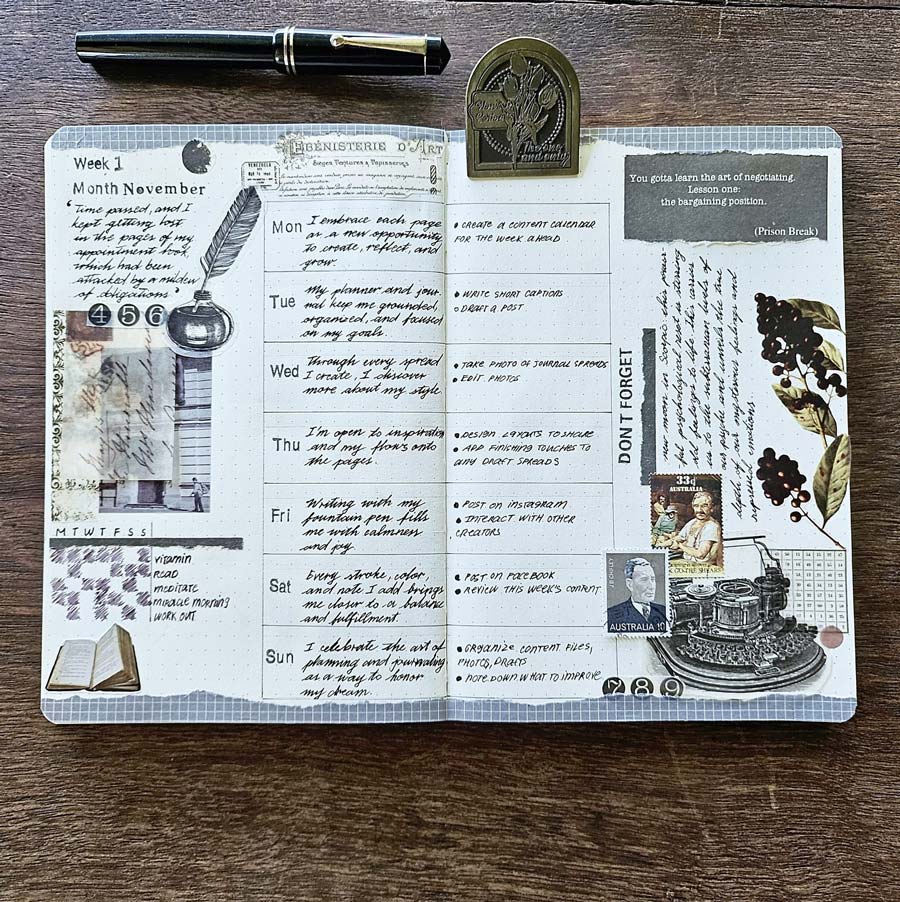 The one
and only
Week 1
Month November
"Time passed, and I
kept getting lost
in the pages of my
appointment book,
which had been
attacked by a mildew
of obligations."
4 5 6
EBÉNISTERIE D'ART
Sièges Tentures & Tapisseries
VENEZUELA
Mon
I embrace each page
as a new opportunity
to create, reflect, and
grow.
• CREATE A CONTENT CALENDAR
FOR THE WEEK AHEAD
Tue
My planner and jour-
nal keep me grounded,
organized, and focused
on my goals.
• WRITE SHORT CAPTIONS
• DRAFT A POST
Wed
Through every spread
I create, I discover
more about my style.
• TAKE PHOTO OF JOURNAL SPREADS
• EDIT PHOTOS
Thu
I'm open to inspiration
and my flows onto
the pages.
• DESIGN LAYOUTS TO SHARE
• ADD FINISHING TOUCHES TO
ANY DRAFT SPREADS
Fri
Writing with my
fountain pen fills
me with calmness
and joy.
• POST ON INSTAGRAM
• INTERACT WITH OTHER
CREATORS
Sat
Every stroke, color,
and note I add brings
me closer to a balance
and fulfillment.
• POST ON FACEBOOK
• REVIEW THIS WEEK'S CONTENT
Sun
I celebrate the art of
planning and journaling
as a way to honor
my dream.
• ORGANIZE CONTENT FILES,
PHOTOS, DRAFTS
• NOTE DOWN WHAT TO IMPROVE
M T W T F S S
vitamin
READ
MEDITATE
MIRACLE MORNING
WORK OUT
You gotta learn the art of negotiating.
Lesson one:
the bargaining position.
(Prison Break)
DON'T FORGET
new moon in Scorpio: this power-
ful psychological reset is strong
to the
our psyche and unveils the true
depth of our mysterious feelings and
emotions.
33c
AUSTRALIA
J.B. CHIFLEY
AUSTRALIA 10
7 8 9